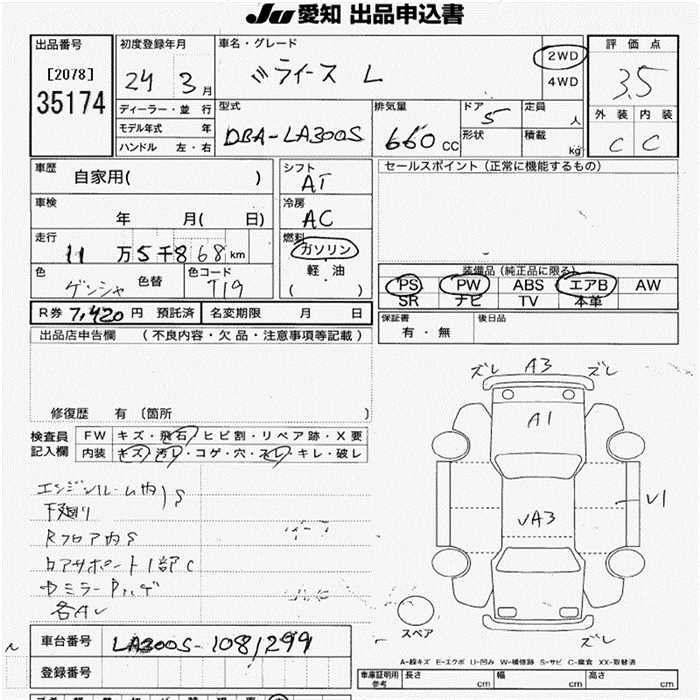 JU 愛知 出品申込書
出品番号
[2078]
35174
初度登録年月
24 3月
ディーラー・並 行
モデル年式 年
ハンドル 左・右
車名・グレード
ミライース L
2WD
4WD
型式
DBA-LA300S
排気量
660 cc
ドア
5
形状
定員
人
積載
kg
評価点
3.5
外装 内装
C C
車歴
自家用( )
車検
年 月( 日)
走行
11万5千868km
色
ゲンシャ
色替
色コード
T19
シフト
AT
冷房
AC
燃料
ガソリン
軽・油
( )
R券 7,420 円 預託済
名変期限 月 日
セールスポイント(正常に機能するもの)
装備品(純正品に限る)
PS PW ABS エアB AW
SR ナビ TV 本革
保証書
有・無
後日品
出品店申告欄 (不良内容・欠品・注意事項等記載)
修復歴 有〔箇所 〕
検査員
記入欄
FW キズ・飛石・ヒビ割・リペア跡・X要
内装 キズ・汚レ・コゲ・穴・スレ・キレ・破レ
エンジンルーム内)S
下廻り
Rフロア内S
ロアサポート1部C
各Aレ
ズレ A3 ズレ
A1
VA3
V1
ズレ
スペア
A-線キズ E-エクボ U-凹み W-補修跡 S-サビ C-腐食 XX-取替済
車台番号 LA300S-1081299
登録番号
車庫証明用
参考
長さ cm
幅 cm
高さ cm